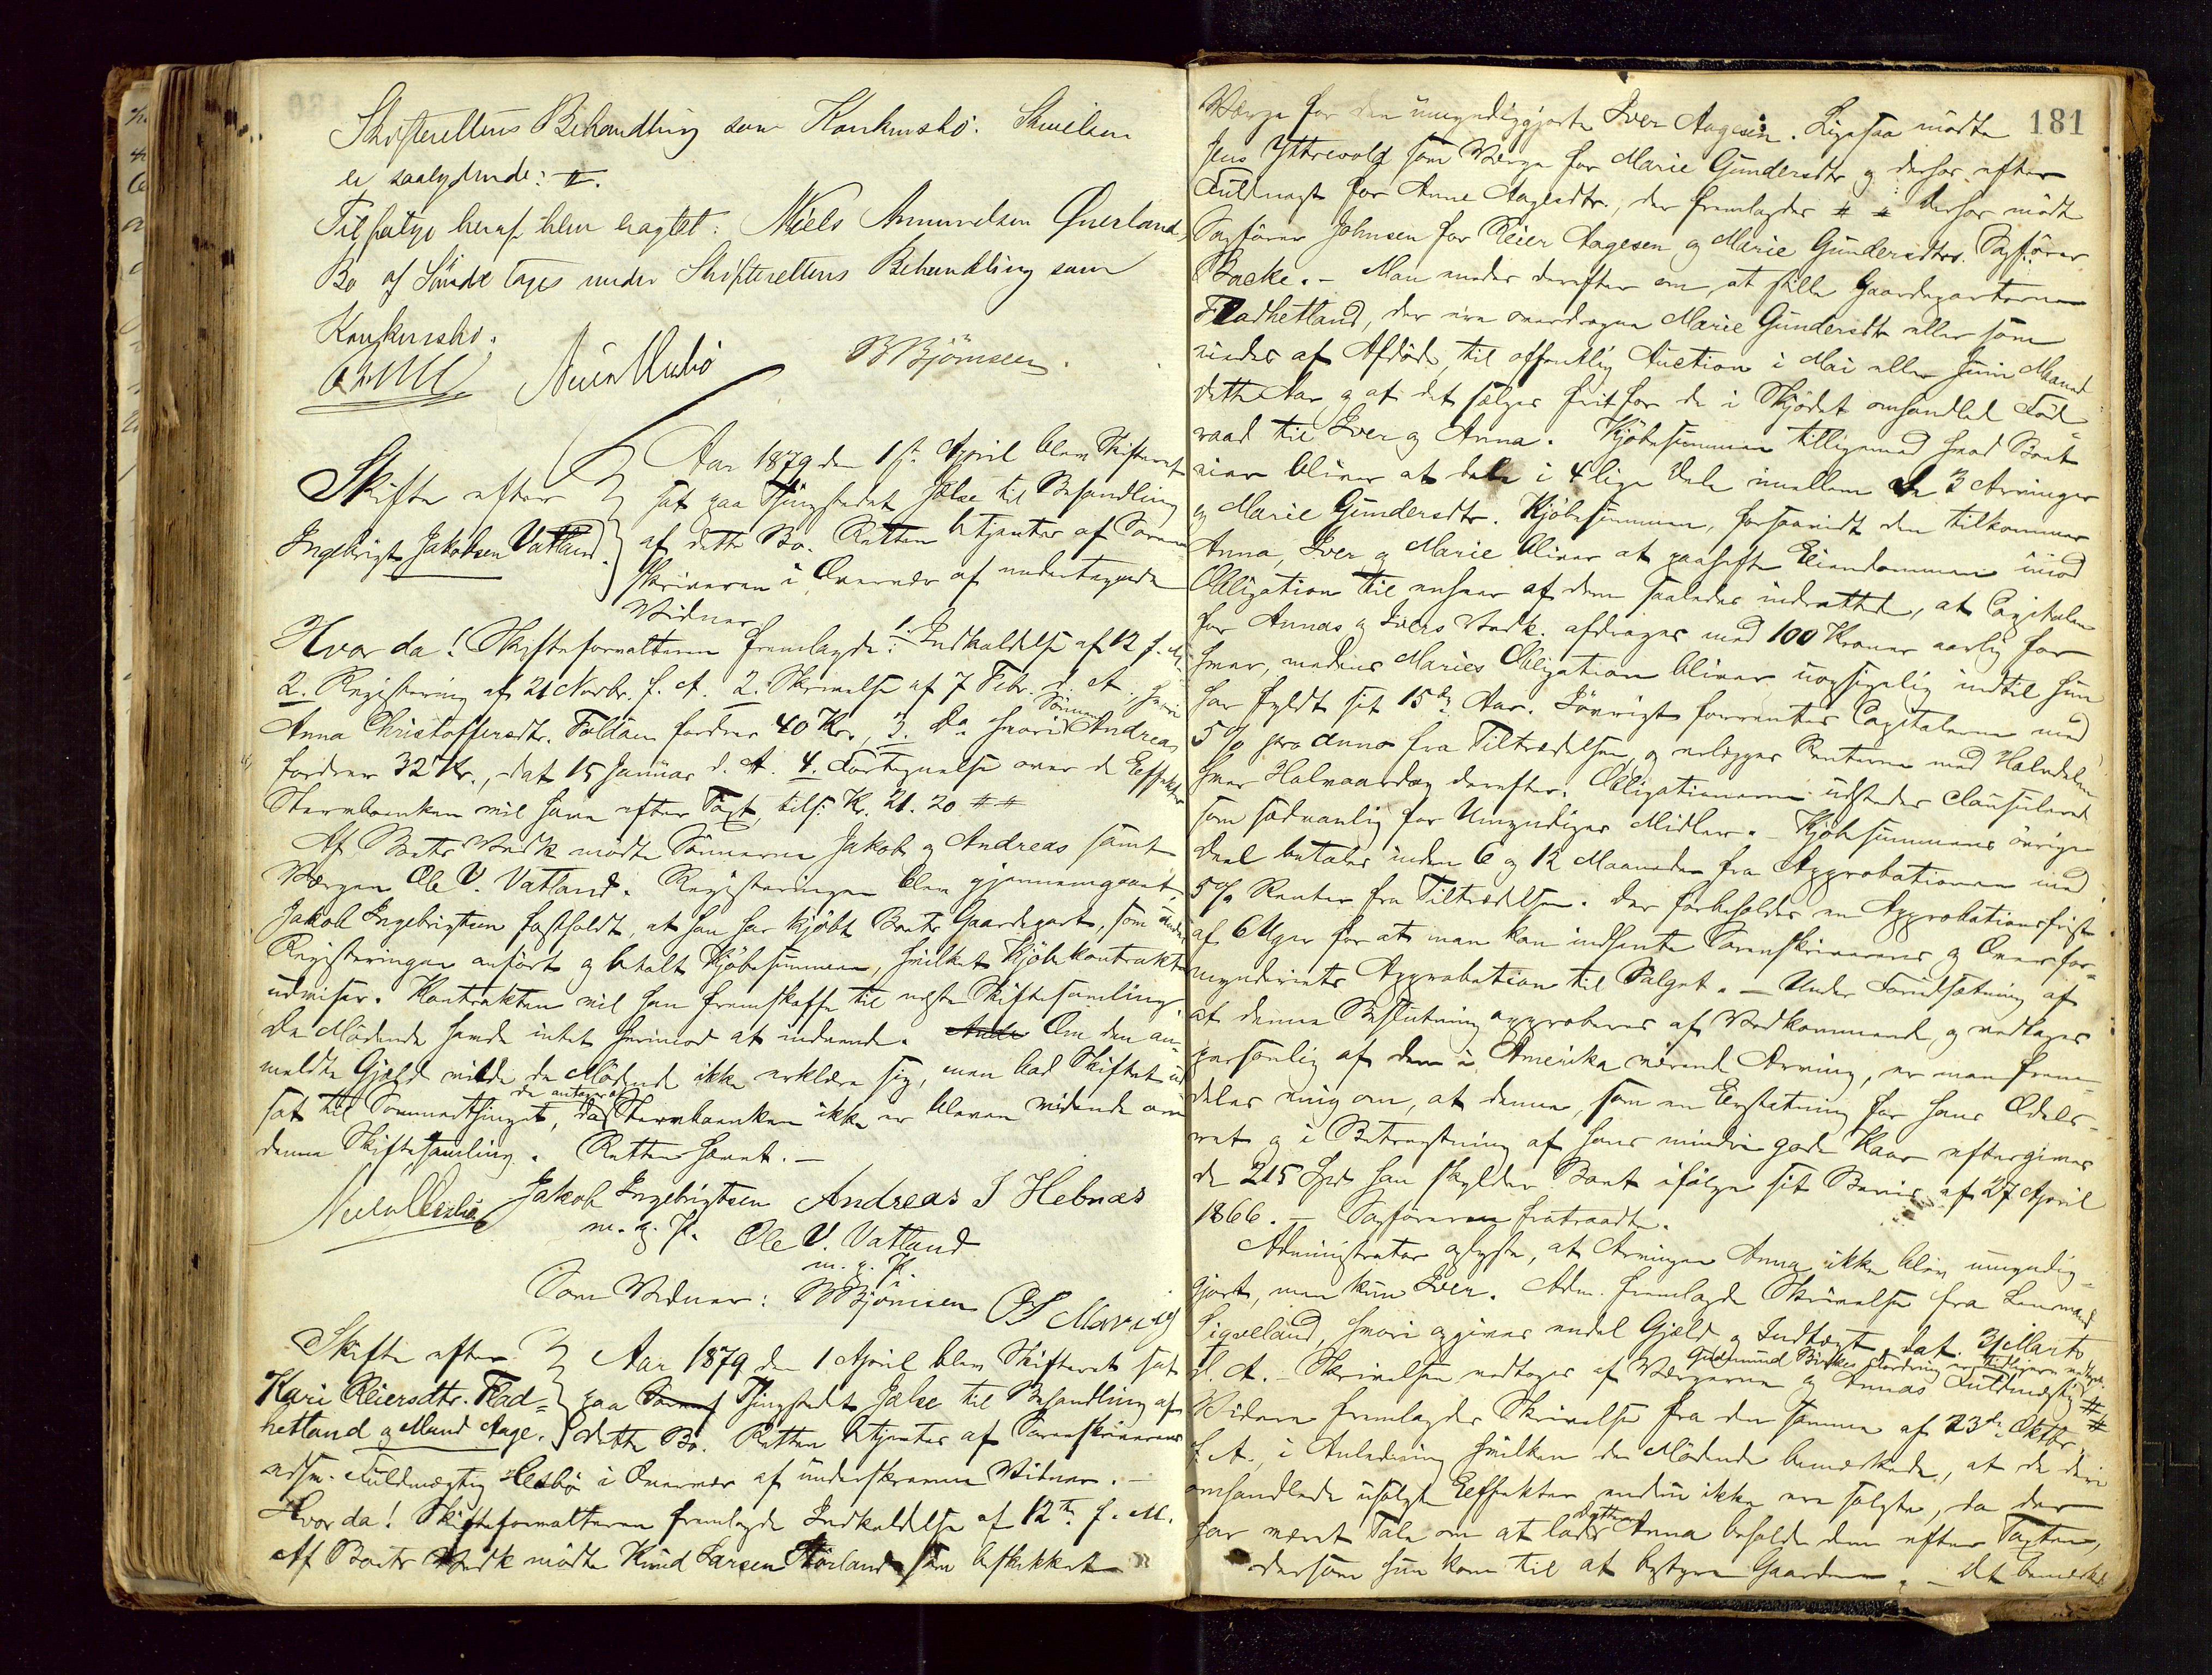 Skifterettens Behandling som Konkursbo. Skrivelsen
er saalydende: #.
Tilfølge heraf blev eragtet: Niels Amundsen Qverland,
Bo af Søndre tages under Skifterettens Behandling som
Konkursbo.
BBjörnsen.
Skifte efter
Ingebrigt Jakobsen Vatland.
Aar 1879 den 1ste April blev Skifteret
sat paa Thingstedet Jælse til Behandling
af dette Bo. Retten betjentes af Soren-
skriveren i Overvær af undertegnede
Vidner
Hvor da! Skifteforvalteren fremlagde: 1. Indkaldelse af 12 f. M.
2. Registrering af 21 Novbr. f. A. 2. Skrivelse af 7 Febr. d. A., hvori
Anna Christoffersdtr. Foldøen fordrer 40 Kr., 3. Do hvori Sønnen Andreas
fordrer 32 Kr., dat 15 Januar d. A. 4. Fortegnelse over de Effekter
Stervboenken vil have efter Taxt, tils. Kr. 21.20 ##
Af Boets Vedk mødte Sønnerne Jakob og Andreas samt
Værgen Ole V. Vatland. Registreringen blev gjennemgaaet,
Jakob Ingebrigtsen fastholdt, at han har kjøbt Boets Gaardepart, som under
Registreringen anført og betalt Kjøbesummen, hvilket Kjøbekontrakten
udviser. Kontrakten vil han fremskaffe til næste Skiftesamling
De Mødende havde intet herimod at indvende. Om den an-
meldte Gjæld vilde de Mødende ikke erklære sig, men bad Skiftet ud
sat til Sommerthinget, da de antager at Stervboenken ikke er bleven vidende om
denne Skiftesamling. Retten hævet. —
Jakob Ingebrigtsen Andreas I Hebnæs
m. p. P. Ole V. Vatland
m. p. P.
Som Vidner: BBjörnsen
Skifte efter
Kari Reiersdtr. Flad-
hetland og Mand Aage.
Aar 1879 den 1 April blev Skifteret sat
paa Thingstedet Jælse til Behandling af
dette Bo. Retten betjentes af Sorenskriverens
edsv. Fuldmægtig Hesbø i Overvær af underskrevne Vidner. —
Hvor da! Skifteforvalteren fremlagde Indkaldelse af 12te f. M.
Af Boets Vedk mødte Knud Larsen som beskikket
181
Værge for den umyndiggjorte Iver Aagesen. Ligesaa mødte
Jens Yttrevold som Værge for Marie Gundersdtr og derhos efter
Fuldmagt for Anne Aagesdtr., der fremlagdes # # Derhos mødte
Sagfører Johnsen for Reier Aagesen og Marie Gundersdtrs. Sagfører
Backe. — Man enedes derefter om, at stille Gaardeparterne
Fladhetland, der ere overdragne Marie Gundersdtr eller som
eiedes af Afdøde, til offentlig Auction i Mai eller Juni Maaned
dette Aar og at det sælges frit for de i Skjødet omhandlede Føde-
raad til Iver og Anna. Kjøbesummen tilligemed hvad Boet
eier bliver at dele i 4 lige Dele imellem de 3 Arvinger
og Marie Gundersdtr. Kjøbesummen, forsaavidt den tilkommer
Anna, Iver og Marie bliver at paahefte Eiendommen imod
Obligation til enhver af dem saaledes indrettet, at Capitalen
for Annas og Ivers Vedk. afdrages med 100 Kroner aarlig for
hver, medens Maries Obligation bliver uopsigelig indtil hun
har fyldt sit 15de Aar. Iøvrigt forrentes Capitalerne med
5% pro anno fra Tiltrædelsen, og erlægges Renterne med Halvdelen
hver Halvaarsdag derefter. Obligationerne udstedes clausuleret
som sædvanlig for Umyndiges Midler. — Kjøbesummens øvrige
Deel betales inden 6 og 12 Maaneder fra Approbationen med
5% Renter fra Tiltrædelsen. Der forbeholdes en Approbationsfrist
af 6 Uger for at man kan indhente Sorenskriverens og Overfor-
mynderiets Approbation til Salget. — Under Forudsætning af
at denne Beslutning approberes af Vedkommende og vedtages
personlig af den i Amerika værende Arving, er man frem-
deles enig om, at denne, som en Erstatning for hans Odels-
ret og i Betragtning af hans mindre gode Kaar eftergives
de 215 Spd. han skylder Boet ifølge sit Bevis af 27 April
1866. — Sagførerne fratraadte.
Administrator oplyste, at Arvingen Anna ikke blev umyndig-
gjort, men kun Iver. Adm. fremlagde Skrivelse fra Lensmand
Sigveland, hvori opgives endel Gjæld og Indtægt, dat. 31 Marts
d. A. — Skrivelsen vedtoges af Værgerne og Annas Fuldmægtig #
Gudmund Fordring er tidligere
Videre fremlagdes Skrivelse fra den samme af 23de Oktbr. #
f. A., i Anledning hvilken de Mødende bemærkede, at de deri
omhandlede usolgte Effekter endnu ikke ere solgte, da der
har været Tale om at lade Datteren Anna beholde dem efter Taxten,
dersom hun kom til at bestyre Gaarden. — Det bemærkes